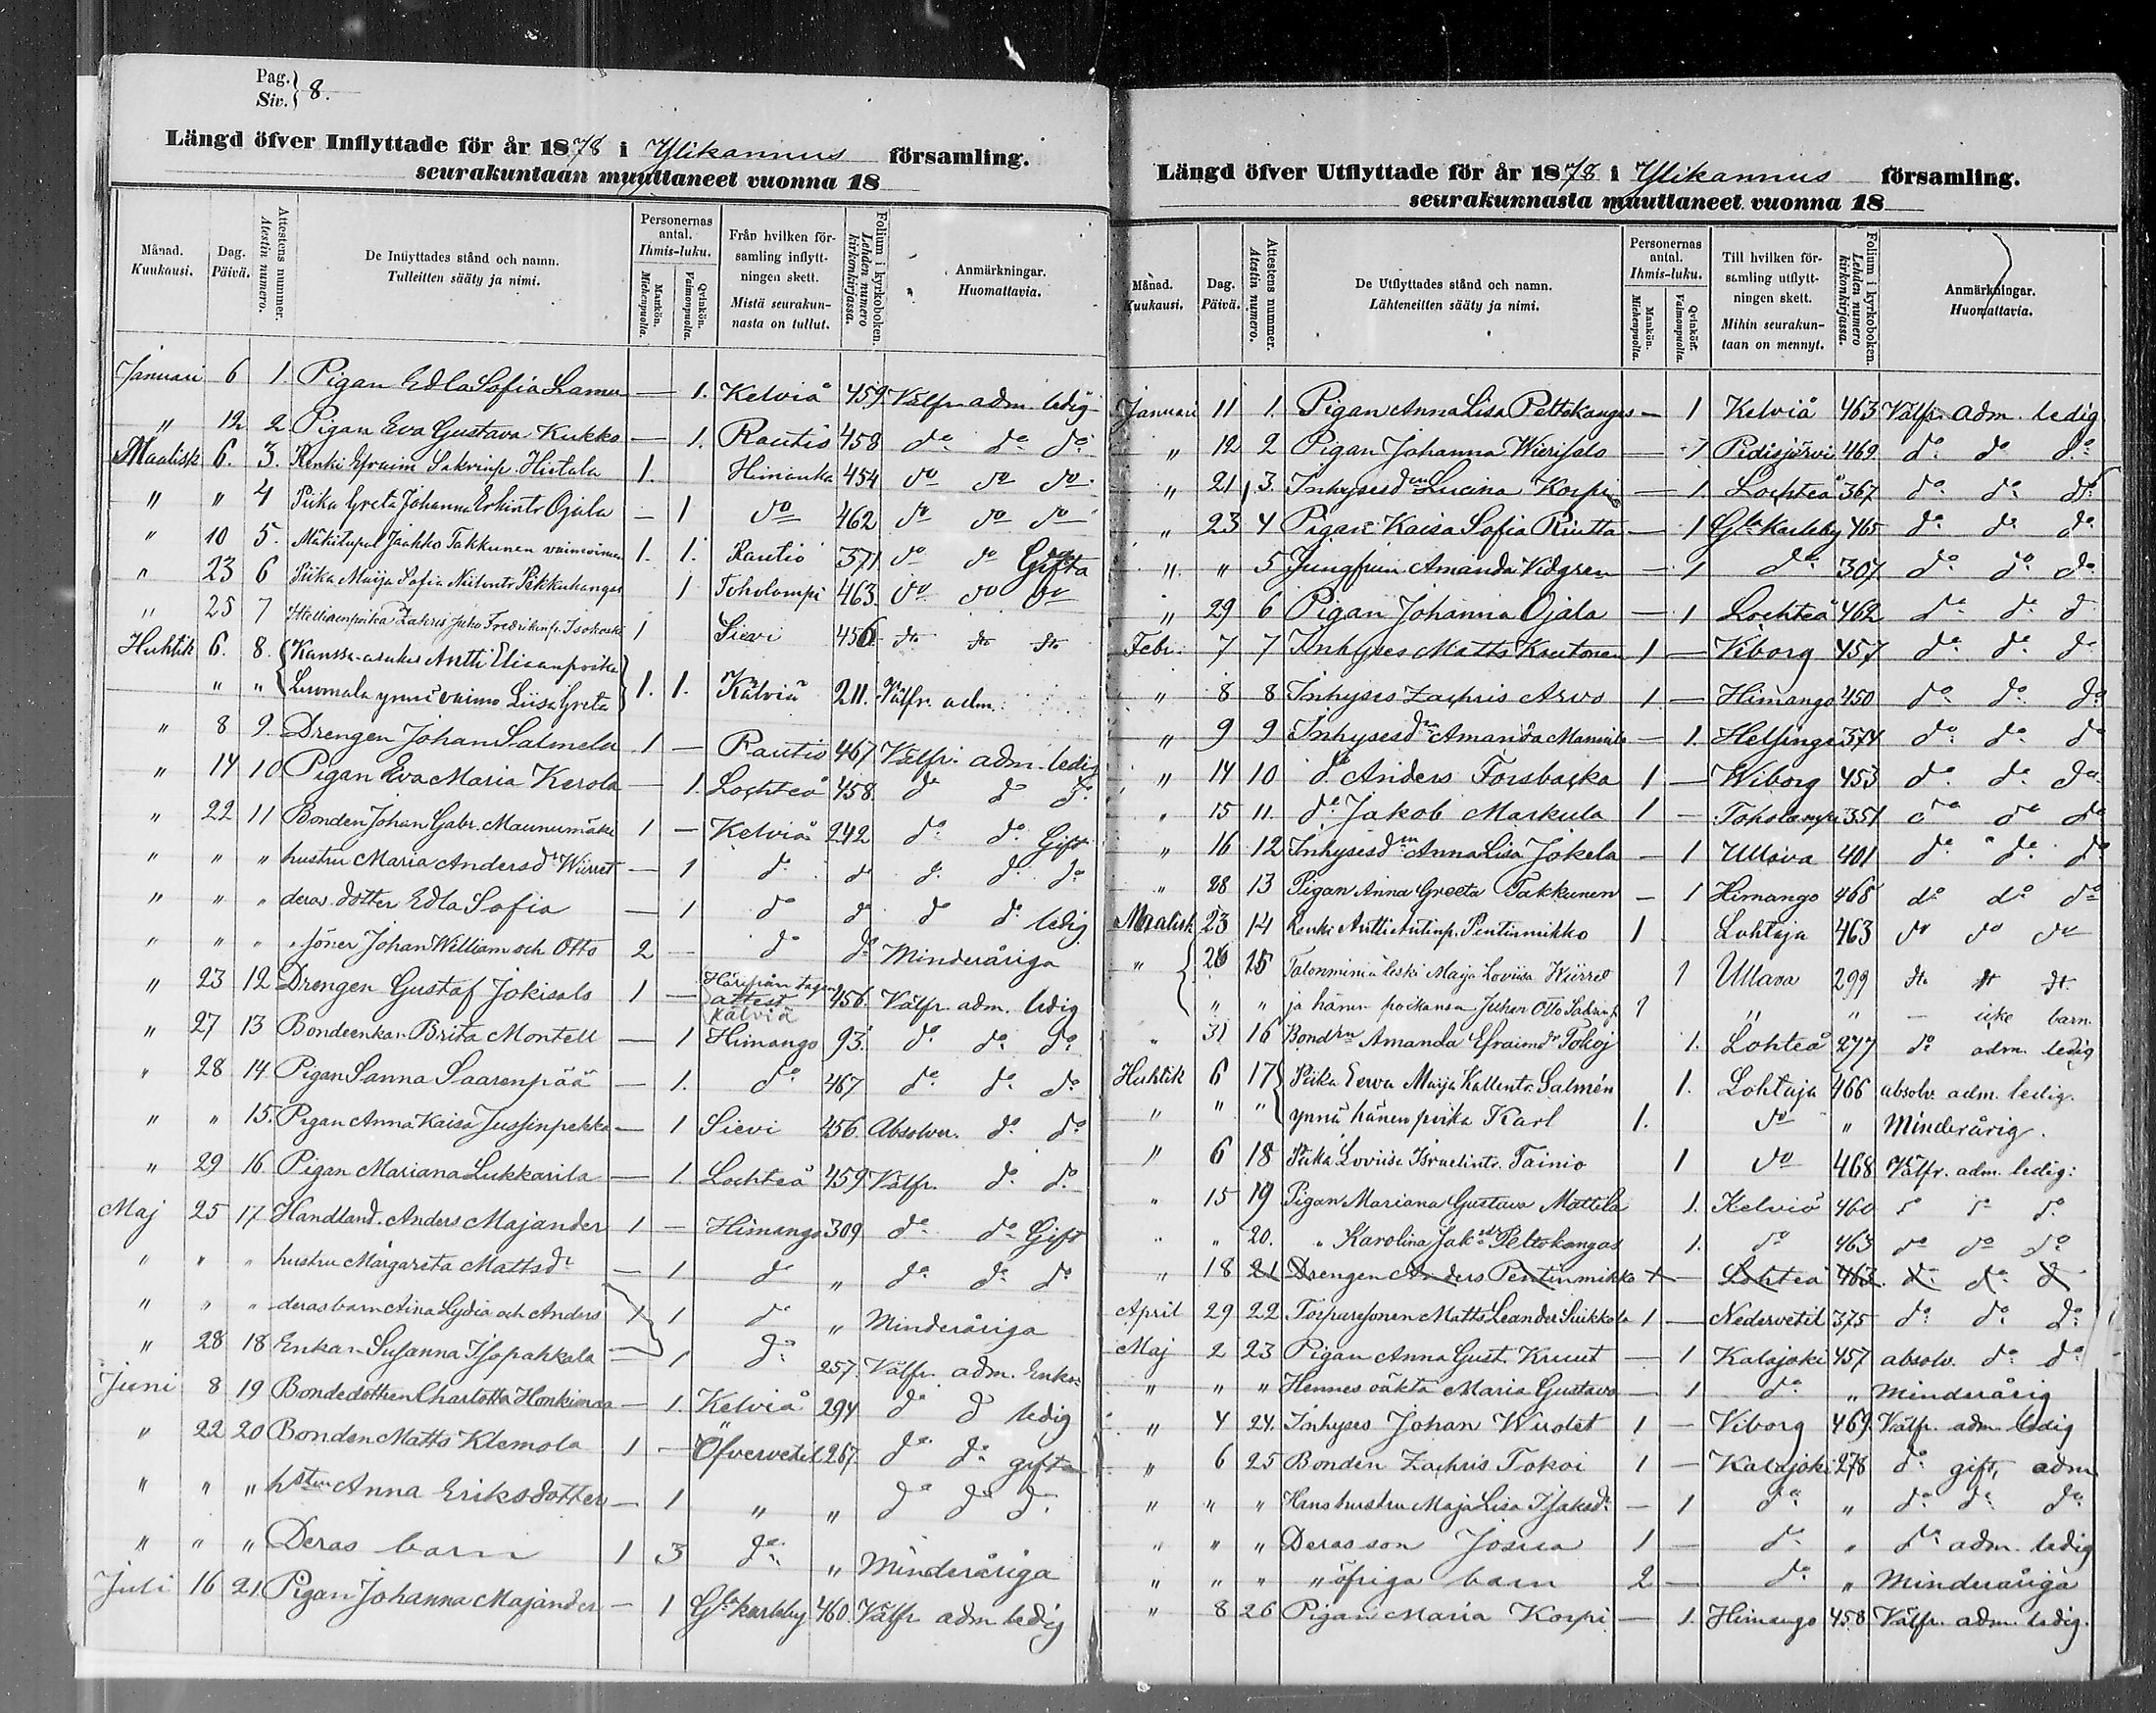 Pag. 8.
Siv.
Längd öfver Inflyttade för år 1878 i Ylikannus församling.
seurakuntaan muuttaneet vuonna 18
Månad. Kuukausi. Dag. Päivä. Attestens nummer. Atestin numero. De Inflyttades stånd och namn. Tulleitten sääty ja nimi. Personernas antal. Ihmis-luku. Mankön. Miehenpuolia. Qvinkön. Vaimonpuolia. Från hvilken församling inflyttningen skett. Mistä seurakunnasta on tullut. Folium i kyrkoboken. Lehden numero kirkonkirjassa. Anmärkningar. Huomattavia.
Januari 6 1. Pigan Edla Sofia — 1. Kelviå 459 Välfr. adm. ledig
" 12 2 Pigan Eva Gustava Kukko — 1. Rautio 458 do do do
Maalisk 6. 3. Renki Efraim Sakrinp. Hietala 1. Himanka 454 do do do
" " 4 Piika Greta Johanna Erkintr Ojala — 1 do 462 do do do
" 10 5. Mäkitupal Jaakko Takkunen vaimoinen 1. 1. Rautio 371 do do Gifta
" 23 6 Piika Maija Sofia Niilontr Pekkahangas 1 Toholampi 463 do do do
" 25 7 Itellisenpoika Zakris Juho Fredrikinp. Isokoski 1 Sievi 456 do do do
Huhtik 6. 8. Kanssa-asukas Antti Eliaanpoika
" " Luomala ynnä vaimo Liisa Greta 1. 1. Kälviä 211. Välfr. adm.
" 8 9. Drengen Johan Salmela 1 — Rautio 467 Välfr. adm. ledig
" 14 10 Pigan Eva Maria Kerola — 1. Lochteå 458 do do do
" 22 11 Bonden Johan Gabr. Maunumäki 1 — Kelviå 242 do do Gift
" " " hustru Maria Andersdr Wiirret — 1 do do do do do
" " " deras dotter Edla Sofia — 1 do do do do ledig
" " " " söner Johan William och Otto 2 — do do Minderåriga
" 23 12 Drengen Gustaf Jokisalo 1 — Härifrån tagen attest Kälviå 456 Välfr. adm. ledig
" 27 13 Bondeenkan Brita Montell — 1 Himango 93 do do do
" 28 14 Pigan Sanna Saarenpää — 1. do 467 do do do
" " 15. Pigan Anna Kaisa Jussinpekka — 1 Sievi 456 Absolver. do do
" 29 16 Pigan Mariana Lukkarila — 1 Lochteå 459 Välfr. do do
Maj 25 17 Handland. Anders Majander 1 — Himango 309 do do Gift
" " " hustru Margareta Mattsdr — 1 do " do do do
" " " deras barn Aina Lydia och Anders 1 1 do " Minderåriga
" 28 18 Enkan Susanna Isopahkala — 1 do 257 Välfr. adm. Enka
Juni 8 19 Bondedottren Charlotta Honkimaa — 1. Kelviå 294 do do ledig
" 22 20 Bonden Matts Klemola 1 — Öfvervetil 267 do do gifta
" " " hstru Anna Eriksdotter — 1 " " do do do
" " " Deras barn 1 3 do " Minderåriga
Juli 16 21. Pigan Johanna Majander — 1 Gla karleby 460. Välfr adm ledig
Längd öfver Utflyttade för år 1878 i Ylikannus församling.
seurakunnasta muuttaneet vuonna 18
Månad. Kuukausi. Dag. Päivä. Attestens nummer. Atestin numero. De Utflyttades stånd och namn. Lähteneitten sääty ja nimi. Personernas antal. Ihmis-luku. Mankön. Miehenpuolia. Qvinkön. Vaimonpuolia. Till hvilken församling utflyttningen skett. Mihin seurakuntaan on mennyt. Folium i kyrkoboken. Lehden numero kirkonkirjassa. Anmärkningar. Huomattavia.
Januari 11 1. Pigan Anna Lisa Peltokangas — 1 Kelviå 463 Välfr. adm. ledig
" 12 2 Pigan Johanna Wierisalo — 1 Pidisjärvi 469 do do do
" 21 3. Inhysesdrn Lucina Korpi — 1 Lochteå 367 do do do
" 23 4 Pigan Kaisa Sofia Riutta — 1 Gla Karleby 465 do do do
" " 5 Jungfrun Amanda Vidgren — 1 do 307 do do do
" 29 6 Pigan Johanna Ojala — 1 Lochteå 462 do do do
Febr. 7 7 Inhyses Matts Kautonen 1 — Viborg 457 do do do
" 8 8 Inhyses Zachris Arvo 1 — Himango 450 do do do
" 9 9 Inhysesdrn Amanda — 1. Helsinge 374 do do do
" 14 10 do Anders Forsbacka 1 — Wiborg 453 do do do
" 15 11. do Jakob Markula 1 — Toholampi 351 do do do
" 16 12 Inhysesdrn Anna Lisa Jokela — 1 Ullava 401 do do do
" 28 13 Pigan Anna Greeta Takkunen — 1 Himango 468 do do do
Maalisk 23 14 Renki Antti Antinp. Pentinmikko 1 Lohtaja 463 do do do
" 26 15 Talonminiä leski Maija Loviisa Wiirret 1 Ullava 299 do do do
" " ja hänen poikansa Juhan Otto Sakrinp. 1 " " — icke barn.
" 31 16 Bondrn Amanda Efraimdr Tokoj 1. Lohteå 277 do adm. ledig
Huhtik 6 17 Piika Eewa Maija Kallentr. Salmén 1. Lohtaja 466 absolv. adm. ledig.
" " " ynnä hänen poika Karl 1. do " Minderårig.
" 6 18 Piika Loviisa Israelintr. Tainio 1 do 468 Välfr. adm. ledig.
" 15 19 Pigan Mariana Gustava Mattila 1. Kelviå 460 do do do
" " 20. " Karolina Jaksdr Peltokangas 1. do 463 do do do
" 18 21 Drengen Anders Pentinmikko 1 — Lohteå 463 do do do
April 29 22 Torparesonen Matts Leander Siikkola 1 — Nedervetil 375 do do do
Maj 2 23 Pigan Anna Gust. Kruut — 1 Kalajoki 457 absolv. do do
" " " Hennes oäkta Maria Gustava — 1 do " Minderårig
" 4 24. Inhyses Johan Wirolet 1 — Viborg 469 Välfr. adm. ledig
" 6 25 Bonden Zachris Tokoi 1 — Kalajoki 278 do gift, adm
" " " Hans hustru Maja Lisa Isaksdr — 1 do " do do do
" " " Deras son Josua 1 — do " do adm. ledig
" " " " öfriga barn 2 — do " Minderåriga
" 8 26 Pigan Maria Korpi — 1. Himango 458 Välfr. adm. ledig.